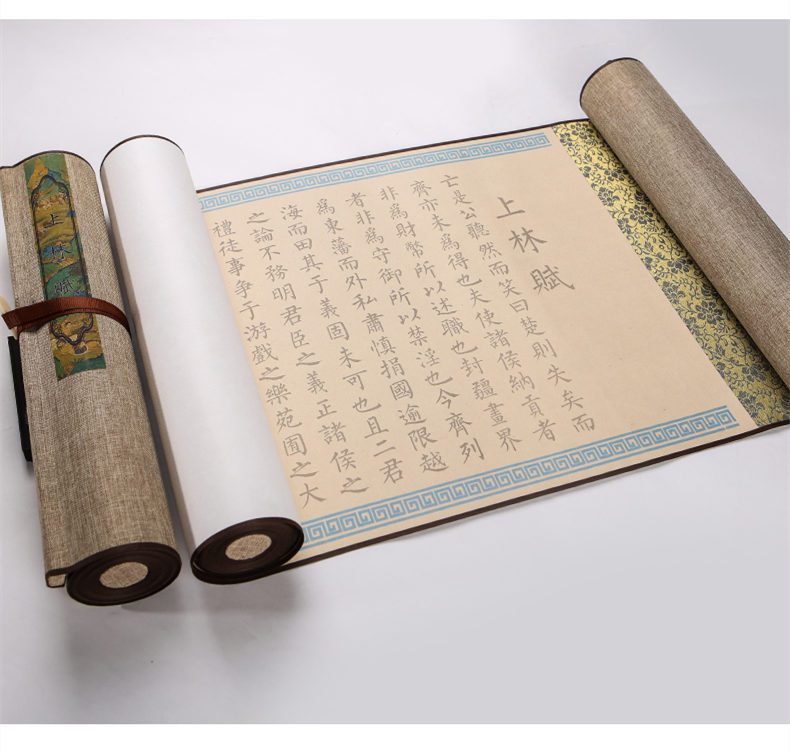 上林賦
上林賦
亡是公聽然而笑曰楚則失矣而
齊亦未爲得也夫使諸侯納貢者
非爲財幣所以述職也封疆畫界
者非爲守御所以禁淫也今齊列
爲東藩而外私肅慎捐國逾限越
海而由其于義固未可也且二君
之論不務明君臣之義正諸侯之
禮徒事爭于游戲之樂苑囿之大